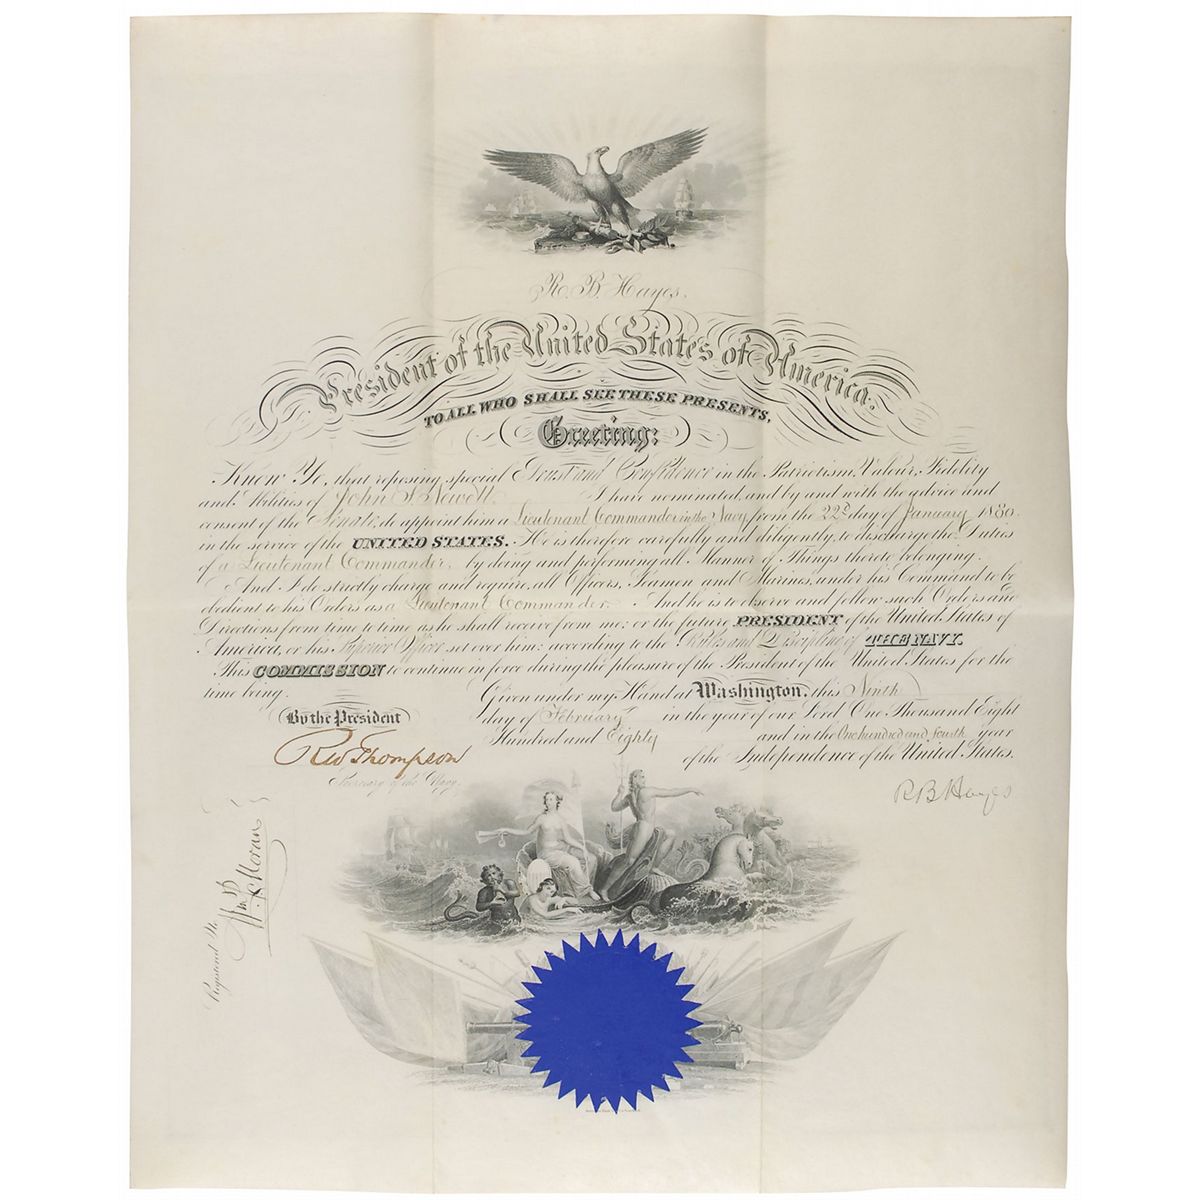 R. B. Hayes.
President of the United States of America:
TO ALL WHO SHALL SEE THESE PRESENTS,
Greeting:
Know Ye, that reposing special Trust and Confidence in the Patriotism, Valour, Fidelity
and Abilities of John S. Newell I have nominated, and by and with the advice and
consent of the Senate, do appoint him a Lieutenant Commander in the Navy from the 22d day of January 1880
in the service of the UNITED STATES. He is therefore carefully and diligently to discharge the Duties
of a Lieutenant Commander, by doing and performing all Manner of Things thereto belonging.
And I do strictly charge and require all Officers, Seamen and Marines, under his Command to be
obedient to his Orders as a Lieutenant Commander. And he is to observe and follow such Orders and
Directions from time to time as he shall receive from me; or the future PRESIDENT of the United States of
America, or his Superior Officer set over him: according to the Rules and Discipline of THE NAVY.
This COMMISSION to continue in force during the pleasure of the President of the United States for the
time being.
Given under my Hand at Washington, this Ninth
day of February in the year of our Lord One Thousand Eight
Hundred and Eighty and in the One hundred and fourth year
of the Independence of the United States.
By the President
RW Thompson
Secretary of the Navy.
R B Hayes
Registered
Wm P Moran